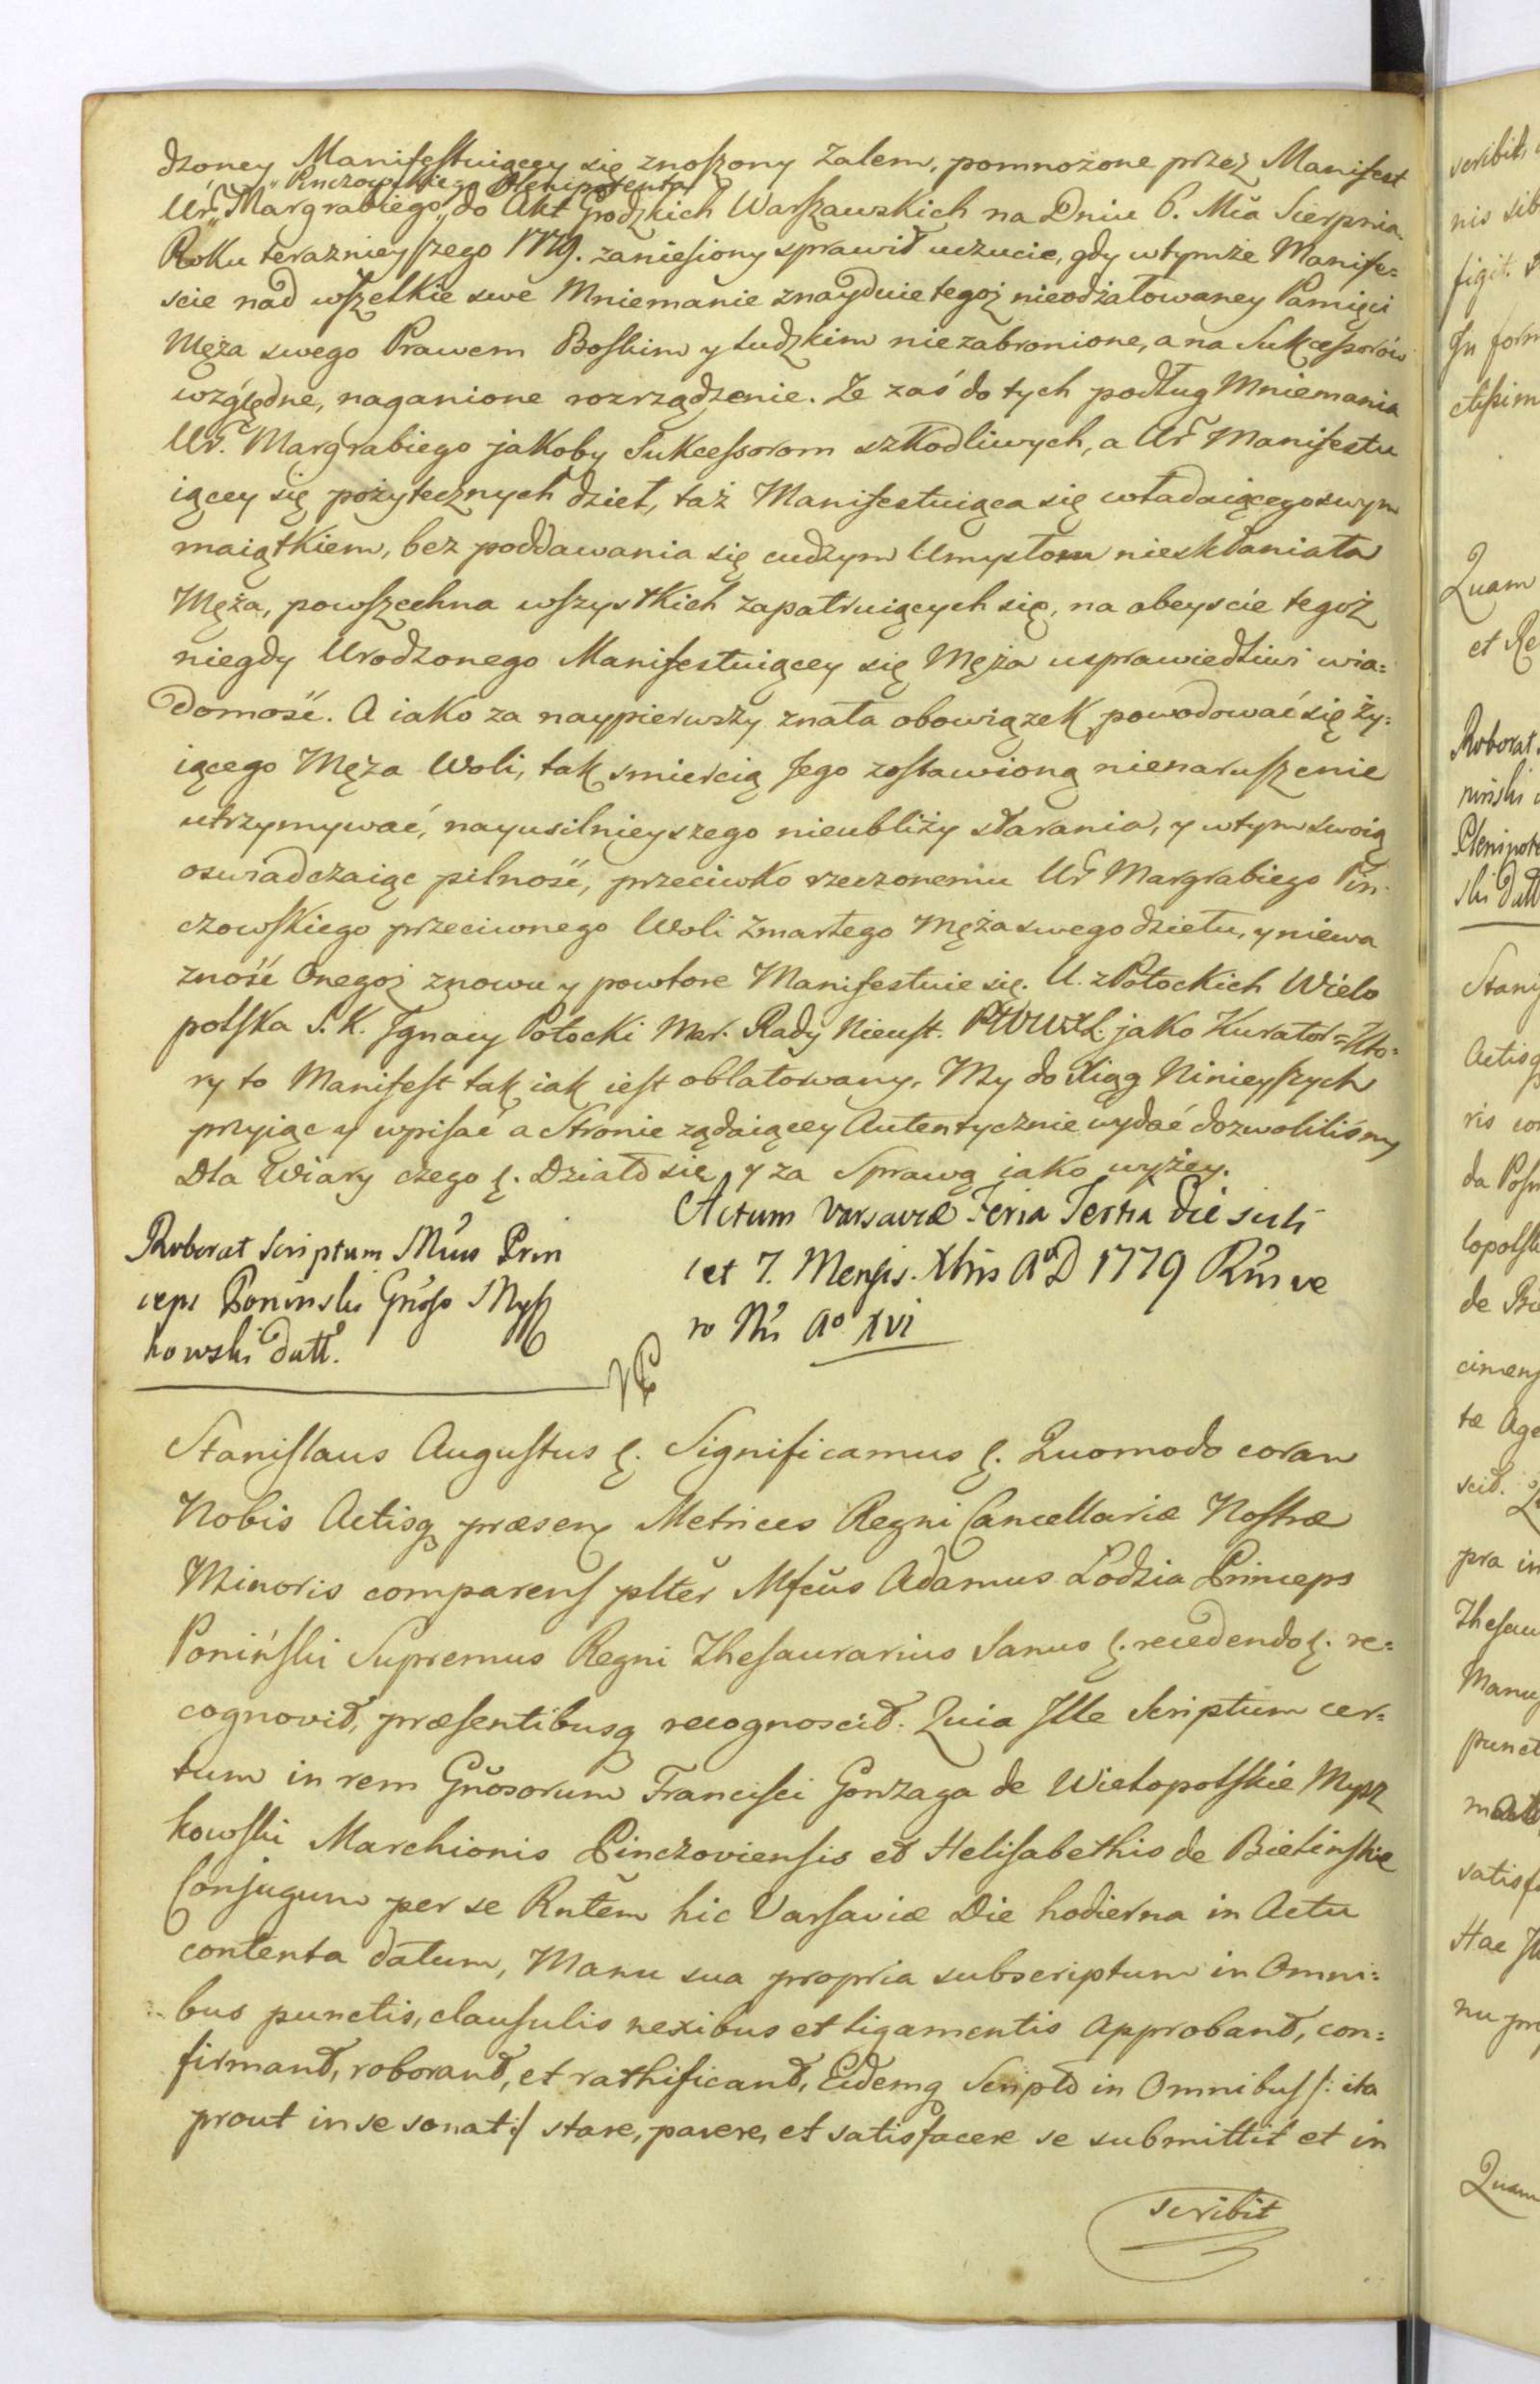 dzoney Manifestuiącey się znoszony Zalem, pomnożone przez Manifest
Pinczowskiego Plenipotenta
Ur. Margrabiego do Akt Grodzkich Warszawskich na Dniu 6. Mca Sierpnia
Roku teraznieyszego 1779. zaniesiony sprawił uczucie, gdy wtymże Manife=
scie nad wszelkie swe Mniemanie znayduie tegoż nieodżałowaney Pamięci
Męża swego Prawem Boskim y Ludzkim niezabronione, a na Sukcessorów
względne, naganione rozrządzenie. Ze zaś do tych podług Mniemania
Ur. Margrabiego jakoby Sukcessorom szkodliwych, a Ur Manifestu
iącey się pożytecznych dzieł, taż Manifestuiąca się władaiącego swym
maiątkiem, bez poddawania się cudzym Umysłom nieskłaniała
Męża, powszechna wszystkich zapatruiących się, na obeyscie tegoż
niegdy Urodzonego Manifestuiącey się Męża usprawiedliwi wia=
domość. A iako za naypierwszy znała obowiązek powodować się ży=
iącego Męża Woli, tak smiercią Jego zostawioną nienaruszenie
utrzymywać, nayusilnieyszego nieubliży starania, y wtym swoią
oswiadczaiąc pilność, przeciwko rzeczonemu Ur Margrabiego Pin=
czowskiego przeciwnego Woli Zmarłego Męża swego dziełu, y niewa
zność Onegoż znowu y powtore Manifestuie się. U. z Potockich Wielo
polska S. K. Ignacy Potocki Mar. Rady Nieust. PWWXL. jako Kurator= Kto=
ry to Manifest tak iak iest oblatowany, My do Xiąg Ninieyszych
przyiąc y wpisać a Stronie ządaiącey Autentycznie wydać dozwoliliśmy
Dla Wiary czego ꝭ. Działo się y za Sprawą iako wyżey.
Roborat Scriptum Mcus Prin
ceps Poninski Gnoso Mysz
kowski datt.
Actum Varsaviæ Feria Tertia Die scili
cet 7. Mensis. Xbris A°D 1779 Rni ve
ro Nri A° XVI
Stanislaus Augustus ꝭ. Significamus ꝭ. Quomodo coram
Nobis Actisq præsen Metrices Regni Cancellariæ Nostræ
Minoris comparens plter Mfcus Adamus Lodzia Princeps
Poniński Supremus Regni Thesaurarius Sanus ꝭ. recedendo ꝭ. re=
cognovit, præsentibusq recognoscit: Quia Ille Scriptum cer=
tum in rem Gnosorum Francisci Gonzaga de Wielopolskie Mysz
kowski Marchionis Pinczoviensis et Helisabethis de Bielinskie
Conjugum per se Rntem hic Varsaviæ Die hodierna in Actu
contenta datum, Manu sua propria subscriptum in Omni=
bus punctis, clausulis nexibus et ligamentis Approband, con=
firmand, roborand, et rathificand, Eidemq Scripto in Omnibus /: ita
prout in se sonat :/ stare, parere, et satisfacere se submittit et in
scribit